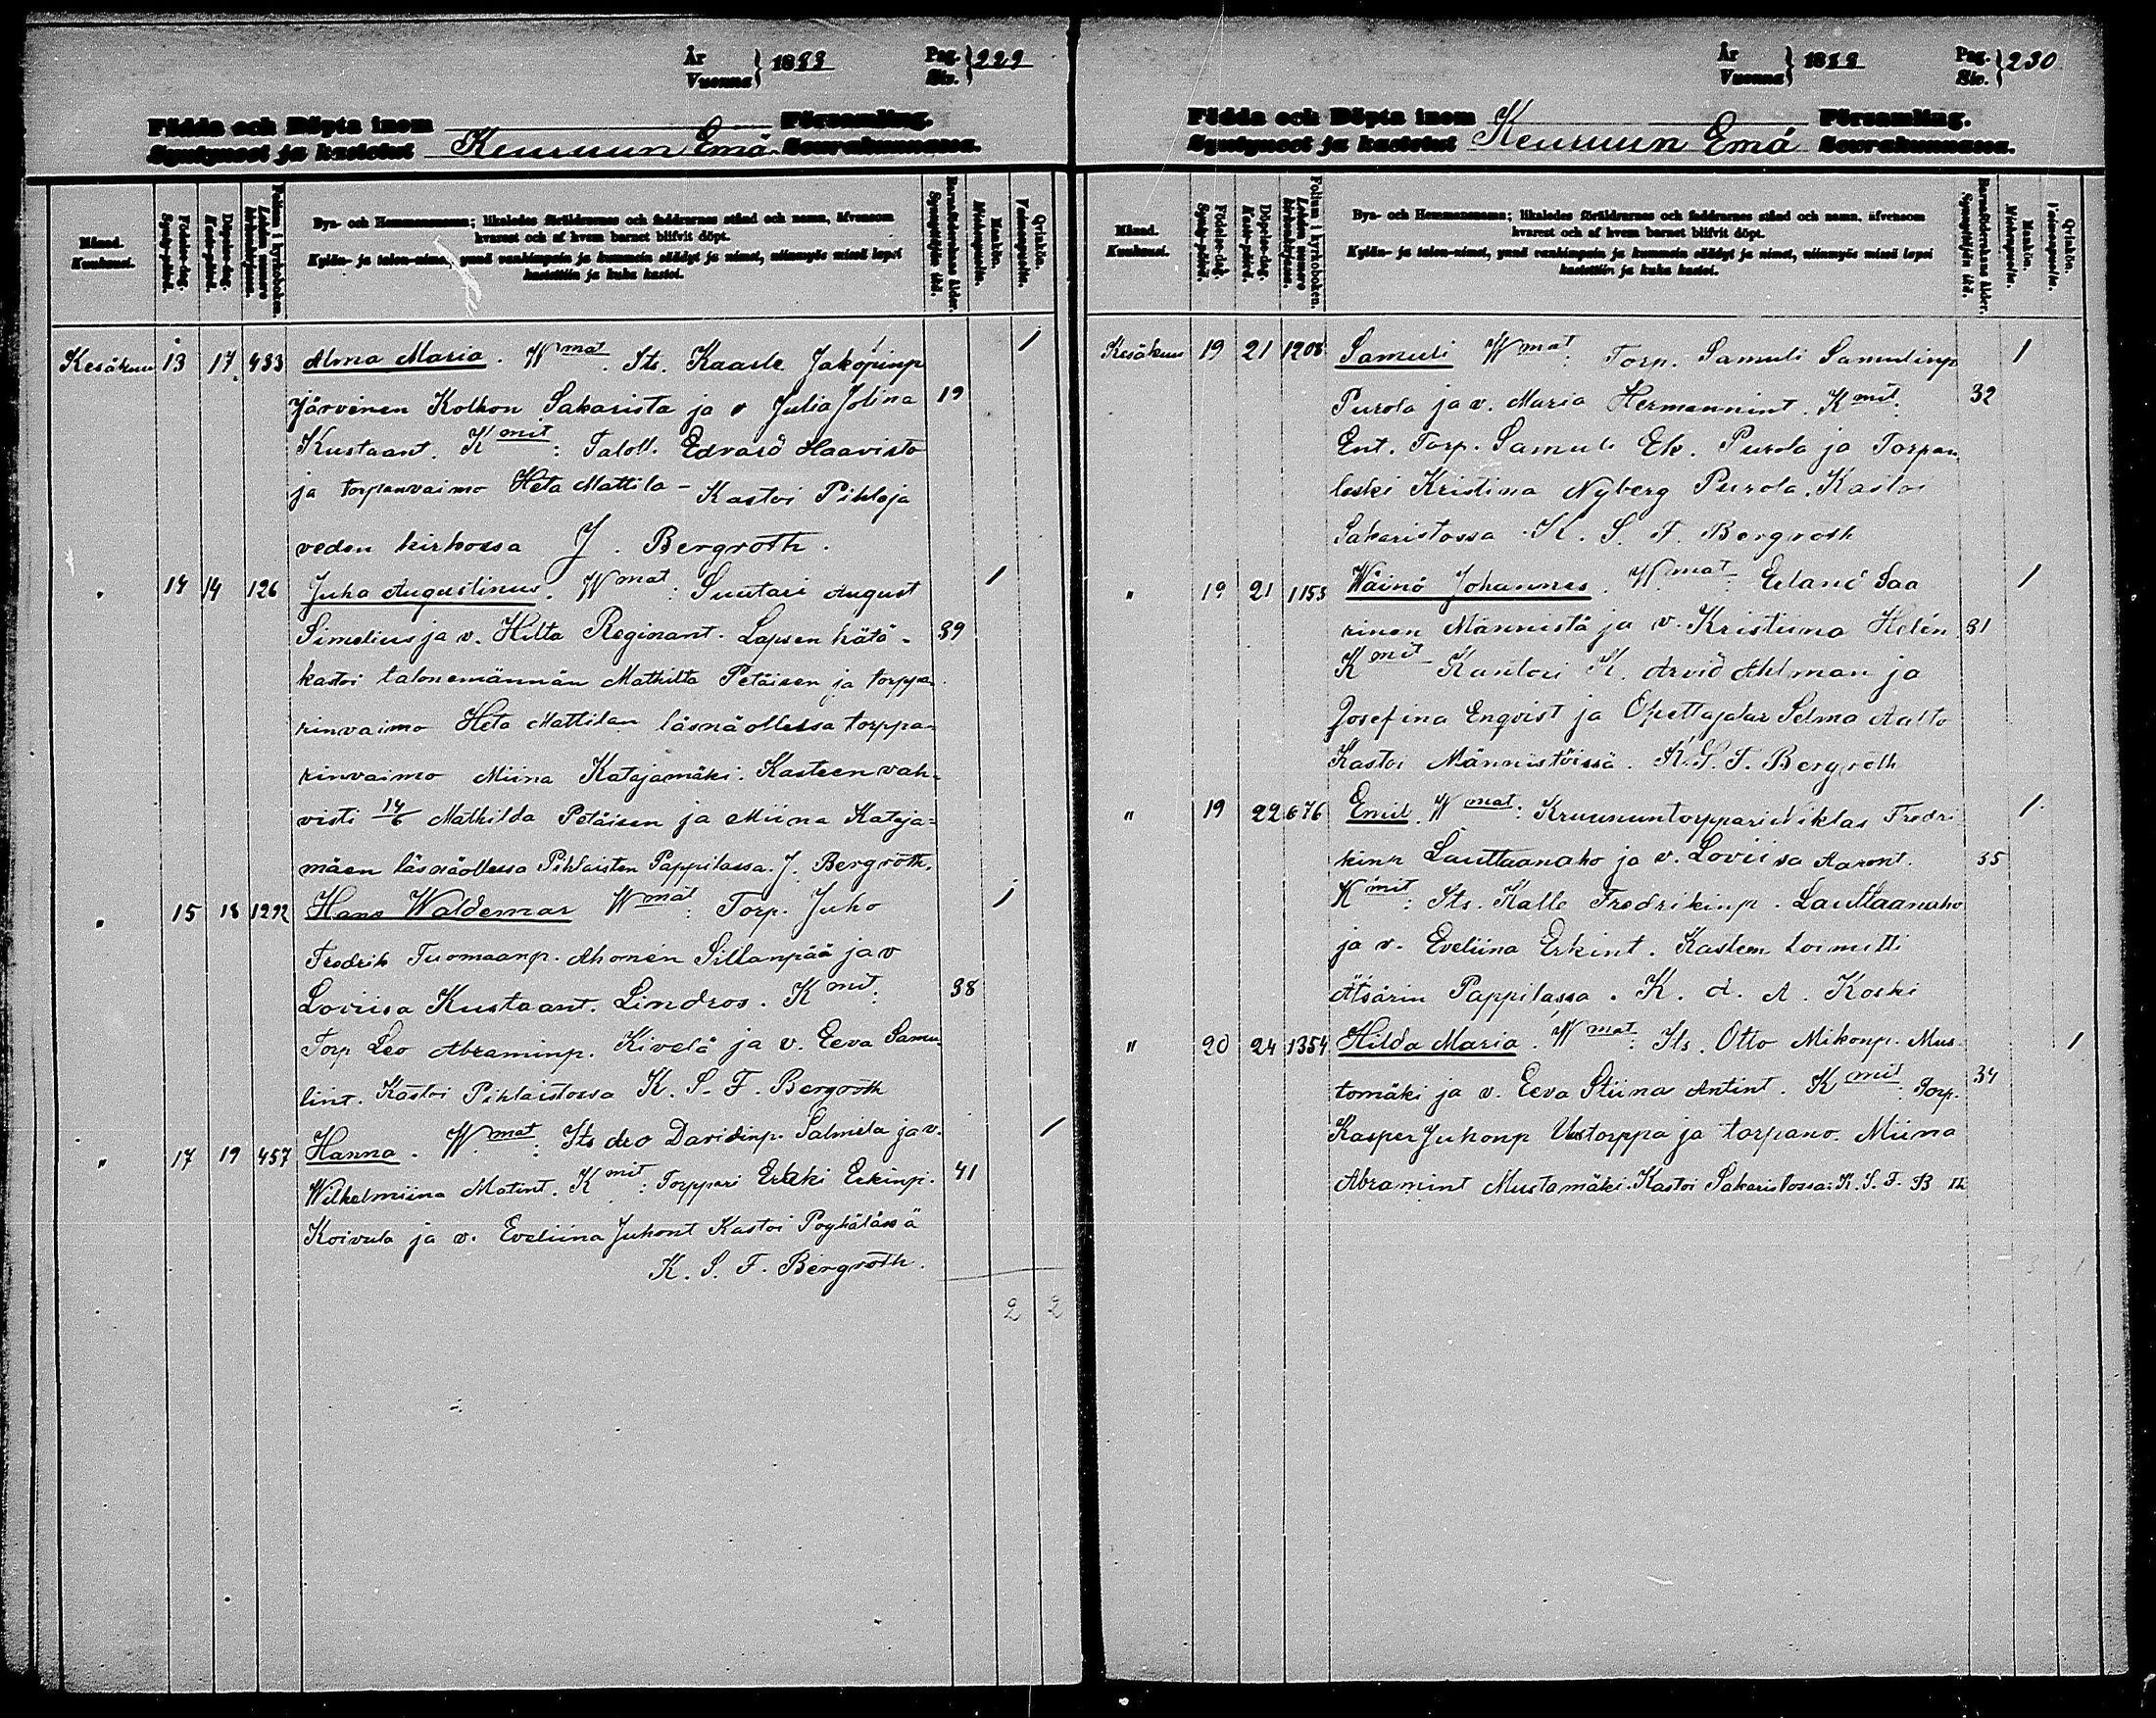 År
Vuonna } 1888
Pag.
Siv. } 229
Födda och Döpta inom Församling.
Syntyneet ja kastetut Keuruun Emä Seurakunnassa.
Månad.
Kuukausi.
Födelse-dag.
Synty-päivä.
Döpelse-dag.
Kaste-päivä.
Folium i kyrkoboken.
Lehden numero kirkonkirjassa.
Bya- och Hemmansnamn; likaledes föräldrarnes och faddrarnes stånd och namn, äfvensom
hvarest och af hvem barnet blifvit döpt.
Kylän- ja talon-nimet, ynnä vanhimpain ja kummein säädyt ja nimet, niinmyös missä lapsi
kastettiin ja kuka kastoi.
Barnaföderskans ålder.
Synnyttäjän ikä.
Mankön.
Miehenpuolta.
Qvinkön.
Vaimonpuolta.
Kesäkuu 13 17 433 Alma Maria. Wmat. Its. Kaarle Jakopinp 1
Järvinen Kolhon Sakarista ja v Julia Jolina 19
Kustaant. Kmit: Taloll. Edvard Haavisto
ja torpanvaimo Heta Mattila - Kastoi Pihlaja
veden kirkossa J. Bergroth.
" 14 14 126 Juha Augustinus. Wmat: Suutari August 1
Simelius ja v. Hilta Reginant. Lapsen hätä- 39
kastoi talonemännän Mathilta Petäisen ja torppa-
rinvaimo Heta Mattilan läsnäollessa torppa-
rinvaimo Miina Katajamäki. Kasteen vah-
visti 14/6 Mathilda Petäisen ja Miina Kataja=
mäen läsnäollessa Pihlaisten Pappilassa. J. Bergroth.
" 15 18 1292 Hans Waldemar Wmat: Torp. Juho 1
Fredrik Tuomaanp. Ahonen Sillanpää ja v
Loviisa Kustaant. Lindros. Kmit: 38
Torp Leo Abraminp. Kivelä ja v. Eeva Samu-
lint. Kastoi Pihlaistossa K. S. F. Bergroth
" 17 19 457 Hanna. Wmat: Its Leo Davidinp. Salmela ja v. 1
Wilhelmiina Matint. Kmit: Torppari Erkki Erkinp. 41
Koivula ja v. Eveliina Juhont Kastoi Poyhälässä
K. S. F. Bergroth.
2 2
År
Vuonna } 1888
Pag.
Siv. } 230
Födda och Döpta inom Församling.
Syntyneet ja kastetut Keuruun Emä Seurakunnassa.
Månad.
Kuukausi.
Födelse-dag.
Synty-päivä.
Döpelse-dag.
Kaste-päivä.
Folium i kyrkoboken.
Lehden numero kirkonkirjassa.
Bya- och Hemmansnamn; likaledes föräldrarnes och faddrarnes stånd och namn, äfvensom
hvarest och af hvem barnet blifvit döpt.
Kylän- ja talon-nimet, ynnä vanhimpain ja kummein säädyt ja nimet, niinmyös missä lapsi
kastettiin ja kuka kastoi.
Barnaföderskans ålder.
Synnyttäjän ikä.
Mankön.
Miehenpuolta.
Qvinkön.
Vaimonpuolta.
Kesäkuu 19 21 1208 Samuli Wmat: Torp. Samuli Samulinp 1
Purola ja v. Maria Hermannint. Kmit. 32
Ent. Torp. Samuli Ek. Purola ja Torpan
leski Kristina Nyberg Purola. Kastoi
Sakaristossa K. S. F. Bergroth
" 19 21 1153 Wäinö Johannes. Wmat: Erland Saa 1
rinen Männistä ja v. Kristiina Helén 31
Kmit Kanttori K. Arvid Ahlman ja
Josefina Enqvist ja Opettajatar Selma Aalto
Kastoi Männistöissä. K. S. F. Bergroth
" 19 22 676 Emil. Wmat: Kruununtorppari Niklas Fredri 1
kinp Lauttaanaho ja v. Loviisa Aaront. 35
Kmit: Its. Kalle Fredrikinp. Lauttaanaho
ja v. Eveliina Erkint. Kasteen toimitti
Ätsärin Pappilassa. K. A. A. Koski
" 20 24 1354 Hilda Maria. Wmat: Its. Otto Mikonp. Mus- 1
tomäki ja v. Eeva Stiina Antint. Kmit: Torp. 34
Kasper Juhonp Uustorppa ja torpanv. Miina
Abramint Mustamäki. Kastoi Sakaristossa: K. S. F. B th
3 1